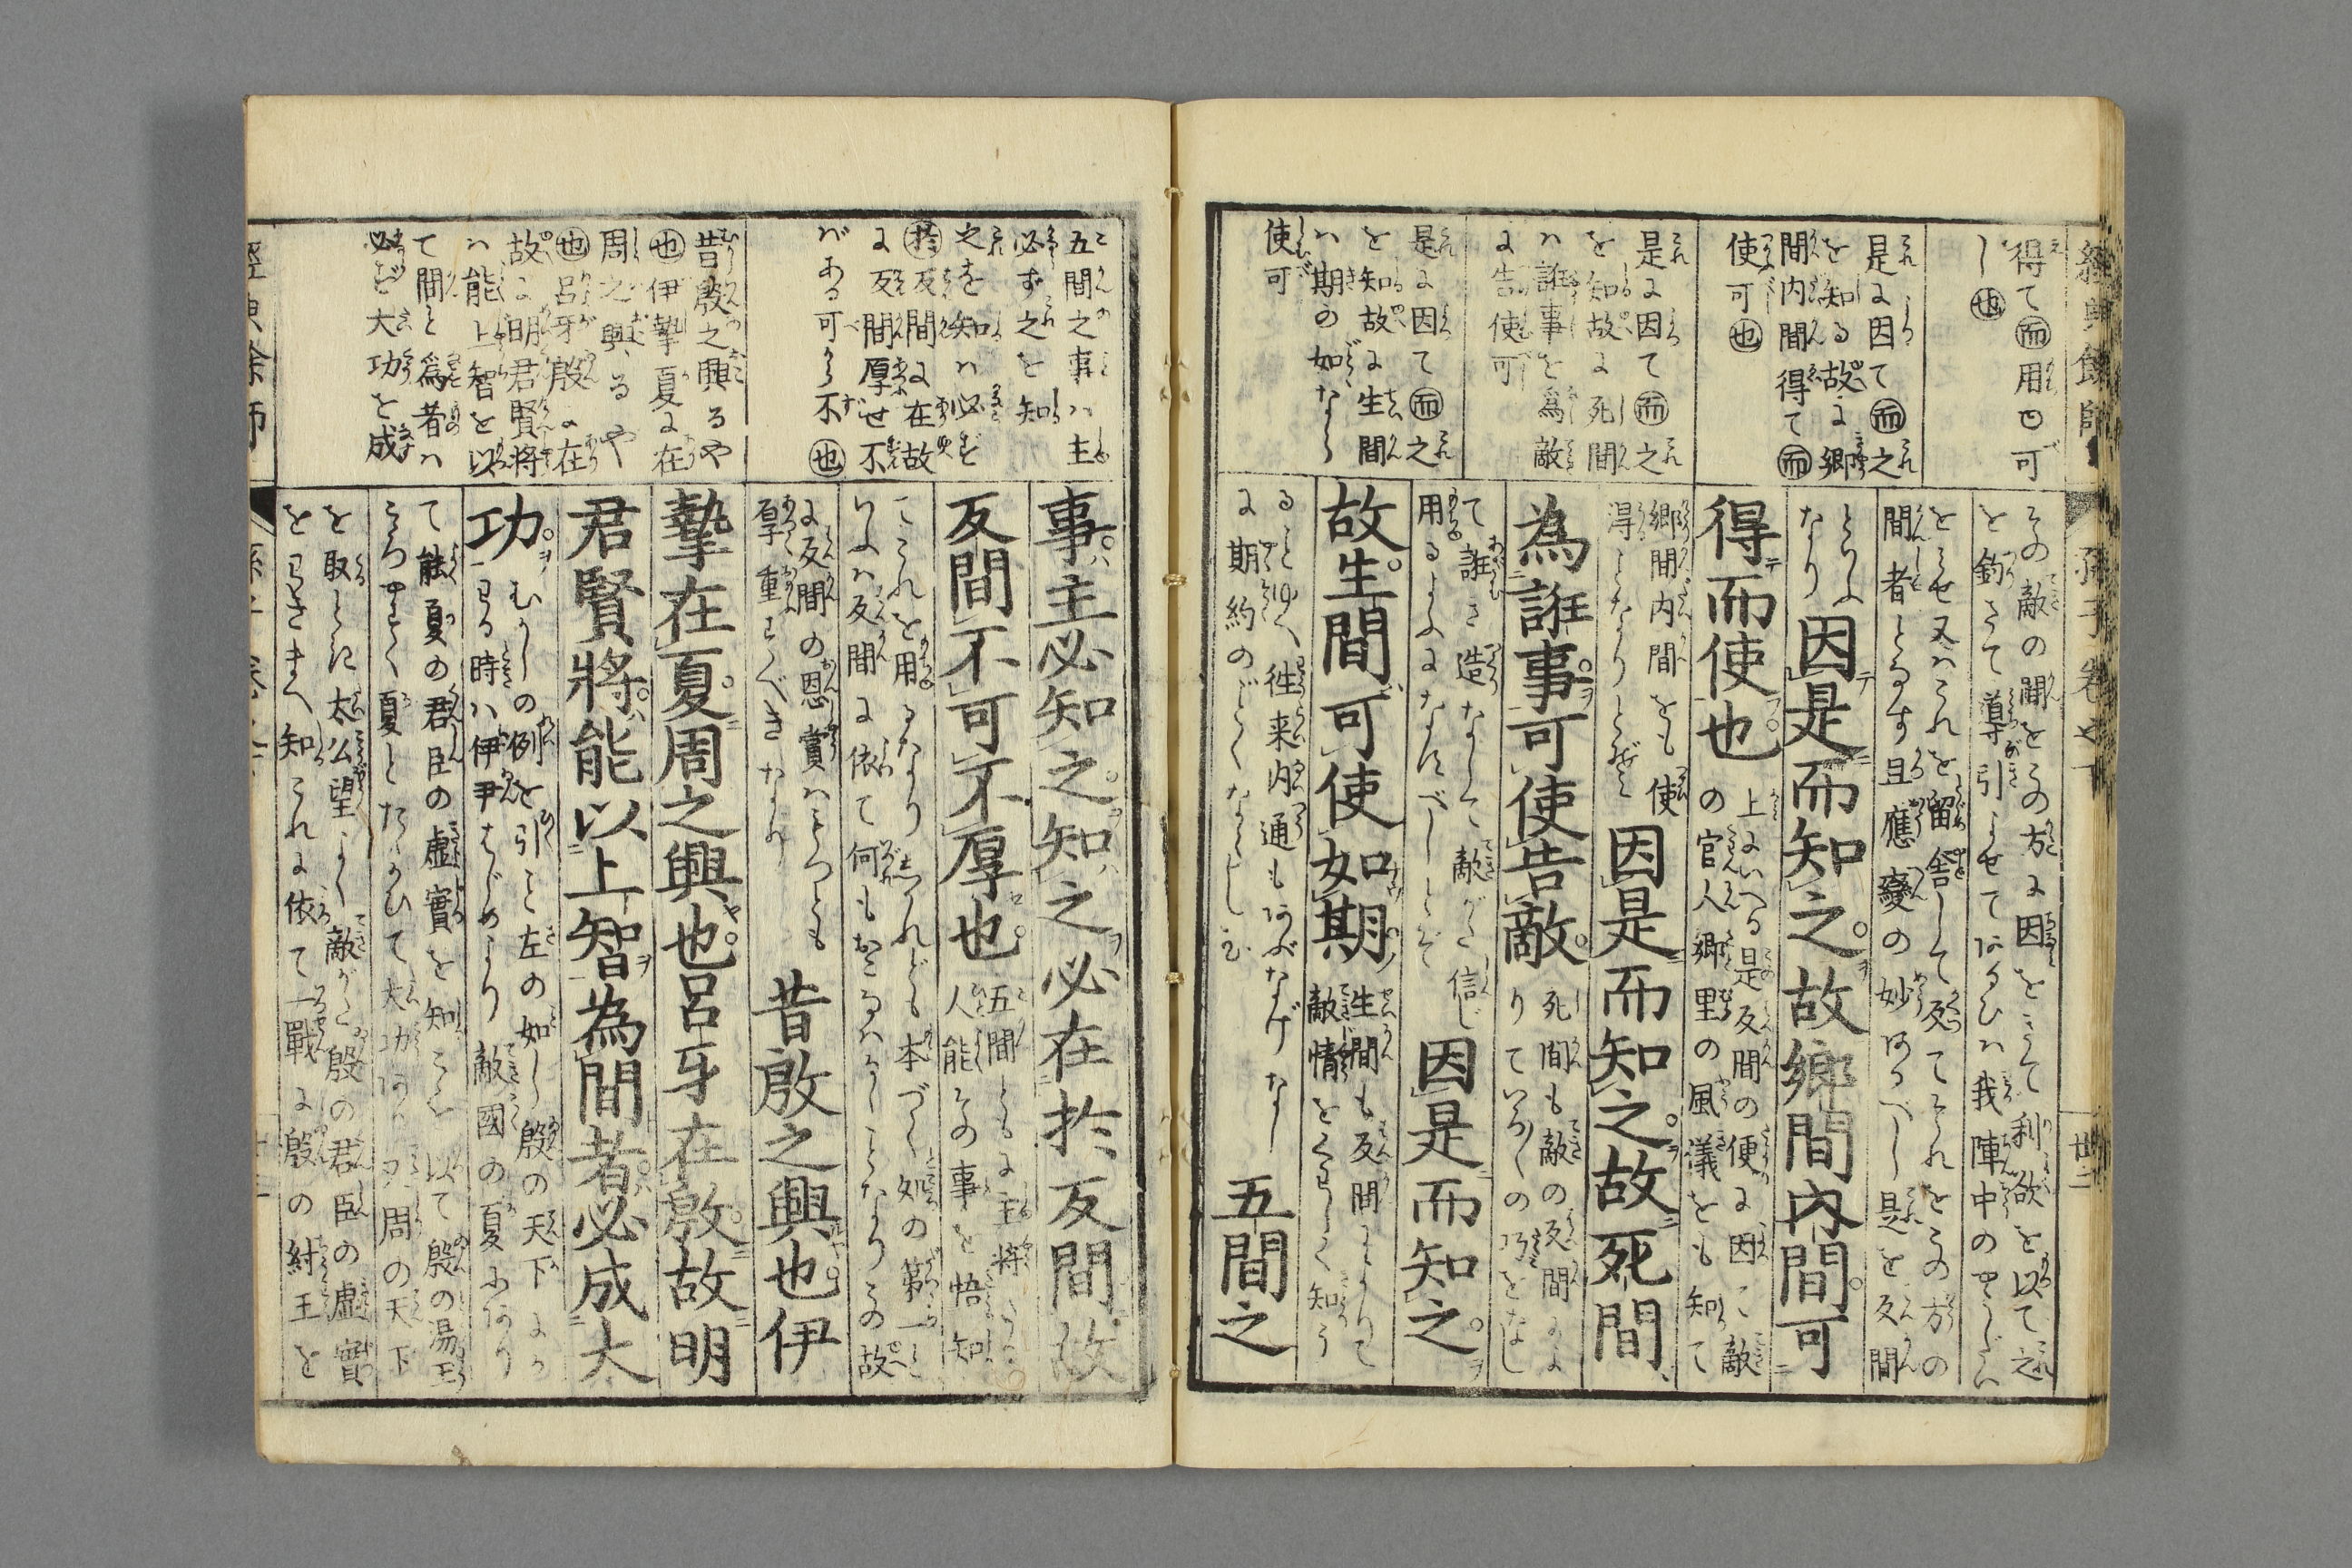 經典餘師
孫子 卷之一
廿二
得て而用曰可
し也
是に因て而之
を知る故に郷
間内間得て而
使可也
是に因て而之
を知故に死間
は誑事を爲敵
に告使可
是に因て而之
を知故に生間
は期の如なら
使可
その敵の間をその方に因をもて利欲を以て之
を釣さて導引よせて
をらせ又はこれを留舎して反てそれをその方の
間者とるす且應變の妙あるべし是を反間
といふ
なり
因是而知之故郷間内間可
得而使也
上にいへる是反間の便に因て敵
の官人郷里の風儀をも知て
郷間内間をも使
得となりとぞ
因是而知之故死間
為誑事可使告敵
死間も敵の反間
りていろ〳〵の巧をなし
て誑き造なして敵がた信じ
用るよふになすべしとぞ
因是而知之
故生間可使如期
生間も反間によりて
敵情をくわしく知う
ると此ゆへ往来内通もあぶなげなし
に期約のごとくなるべし
五間之
五間之事は主
必ず之を知
之を知は必ず
於反間に在故
に反間厚せ不
ばある可ら不也
昔殷之興るや
也伊摯夏に在
周之興るや
也呂牙殷に在
故に明君賢将
は能上智を以
て間と爲者は
必ず大功を成
事主必知之知之必在於反間故
反間不可不厚也
五間ともに主将
人能その事を悟知
てこれを用るなりされども本づく処の第一と
いふは反間に依て何もおこるべきことなりこの故
に反間の恩賞はもつとも
厚重すべきなり
昔殷之興也伊
摯在夏周之興也呂牙在殷故明
君賢將能以上智為間者必成大
功
むかしの例を引こと左の如し殷の天下
一する時は伊尹はじめより敵國の夏にありて
て能夏の君臣の虚實を知これを以て殷の湯王
夏とたゝかひて大功あり又周の天下
を取ときに太公望よく敵がた殷の君臣の虚實
をわきまへ知これに依て一戰に殷の紂王を
經典餘師